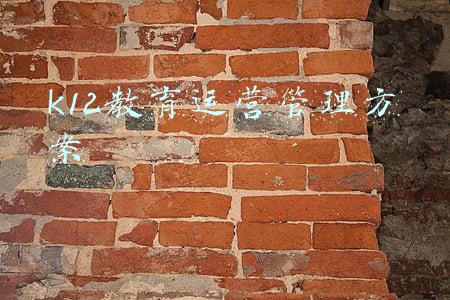 K12教育运营管理方
案